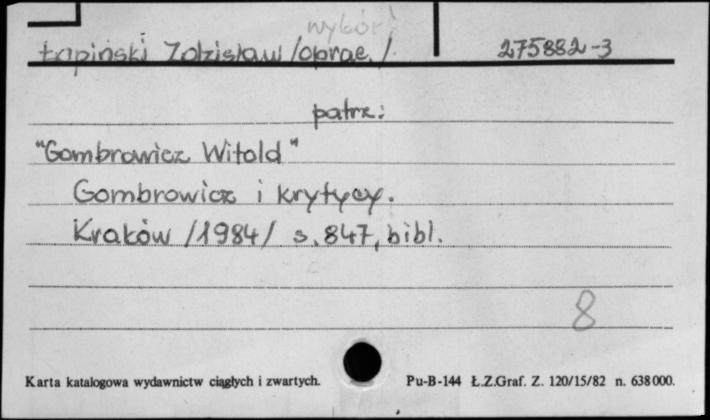 wybór!
Łapiński Zdzisław /oprac./. 275882-3
patrz:
"Gombrowicz Witold"
Gombrowicz i krytycy.
Kraków /1984/ s. 847, bibl.
8
Karta katalogowa wydawnictw ciągłych i zwartych. Pu-B-144 Ł.Z.Graf. Z. 120/15/82 n. 638000.